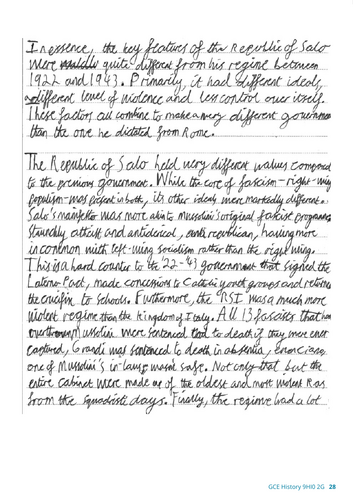 In essence, the key features of the Republic of Salo
were quite different from his regime between
1922 and 1943. Primarily, it had different ideals,
a different level of violence and less control over itself.
These factors all combine to make a very different governance
than the one he dictated from Rome.
The Republic of Salo held very different values compared
to the previous governance. While the core of fascism - right-wing
populism - was present in both, its other ideals were markedly different.
Salo's manifesto was more akin to Mussolini's original fascist programme
staunchly atheist and anticlerical, republican, having more
in common with left-wing socialism rather than the right wing.
This is a hard counter to the '22-43 government that signed the
Lateran Pact, made concessions to Catholic youth groups and returned
the crucifix to schools. Furthermore, the RSI was a much more
violent regime than the Kingdom of Italy. All 13 fascists that had
overthrown Mussolini were sentenced to death if they were ever
captured, Grandi was sentenced to death in absentia, even Ciano,
one of Mussolini's in-laws wasn't safe. Not only that but the
entire cabinet were made up of the oldest and most violent Ras
from the squadristi days. Finally, the regime had a lot
GCE History 9HI0 2G 28